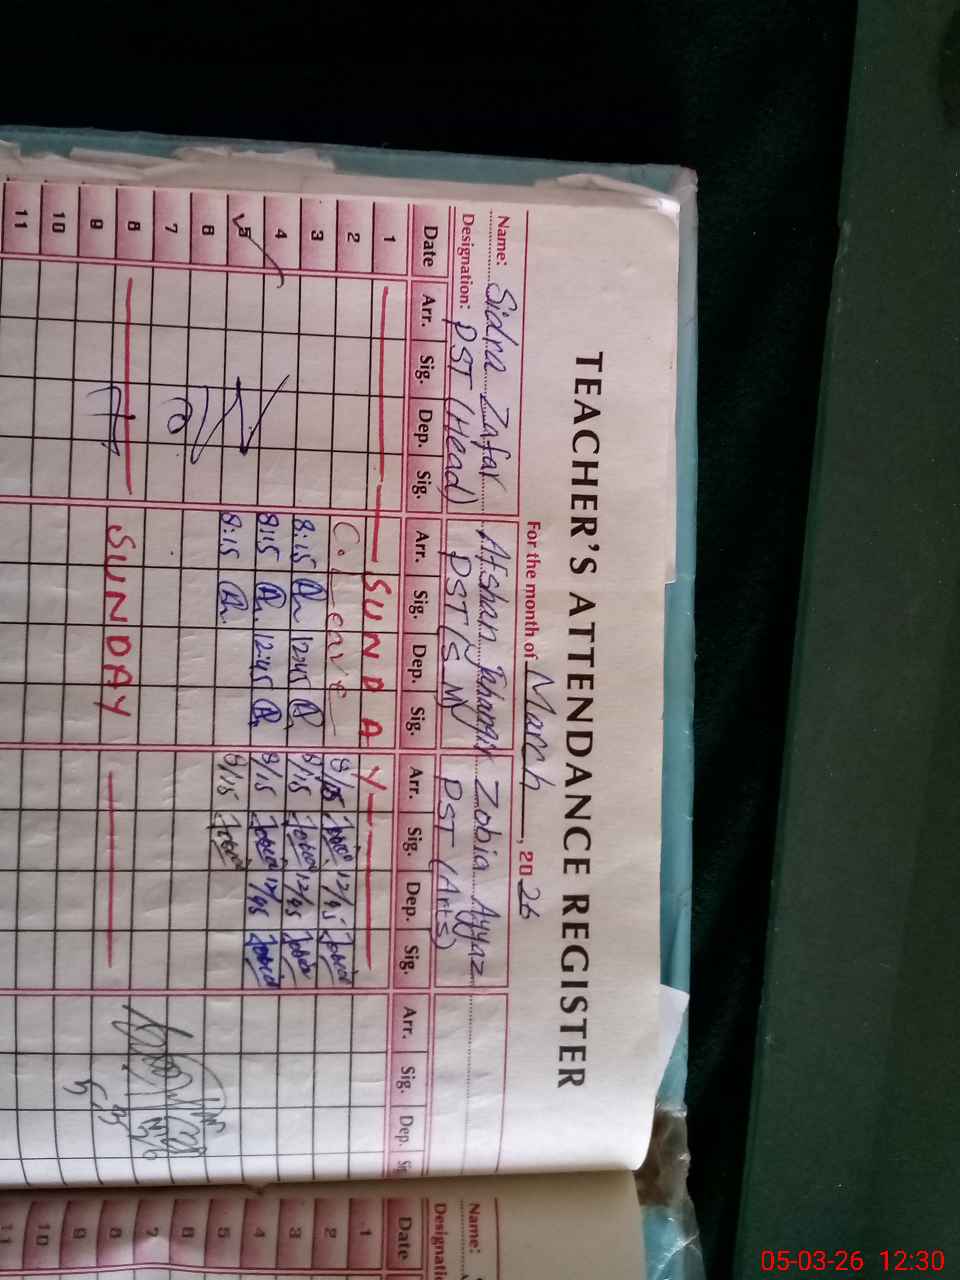 TEACHER'S ATTENDANCE REGISTER
For the month of March, 2026
Name: Sidra Zafar Afshan Jehangir Zobia Ayyaz
Designation: PST (Head) PST (SM) PST (Arts)
Date Arr. Sig. Dep. Sig. Arr. Sig. Dep. Sig. Arr. Sig. Dep. Sig. Arr. Sig. Dep.
1 SUNDAY
2 C. Leave 8/15 12/45
3 8:15 12:45 8/15 12/45
4 8:15 12:45 8/15 12/45
5 8:15 8/15
6
7
8 SUNDAY
9
10
11
Name:
Designati
Date
1
2
3
4
5
6
7
8
9
10
11
05-03-26 12:30